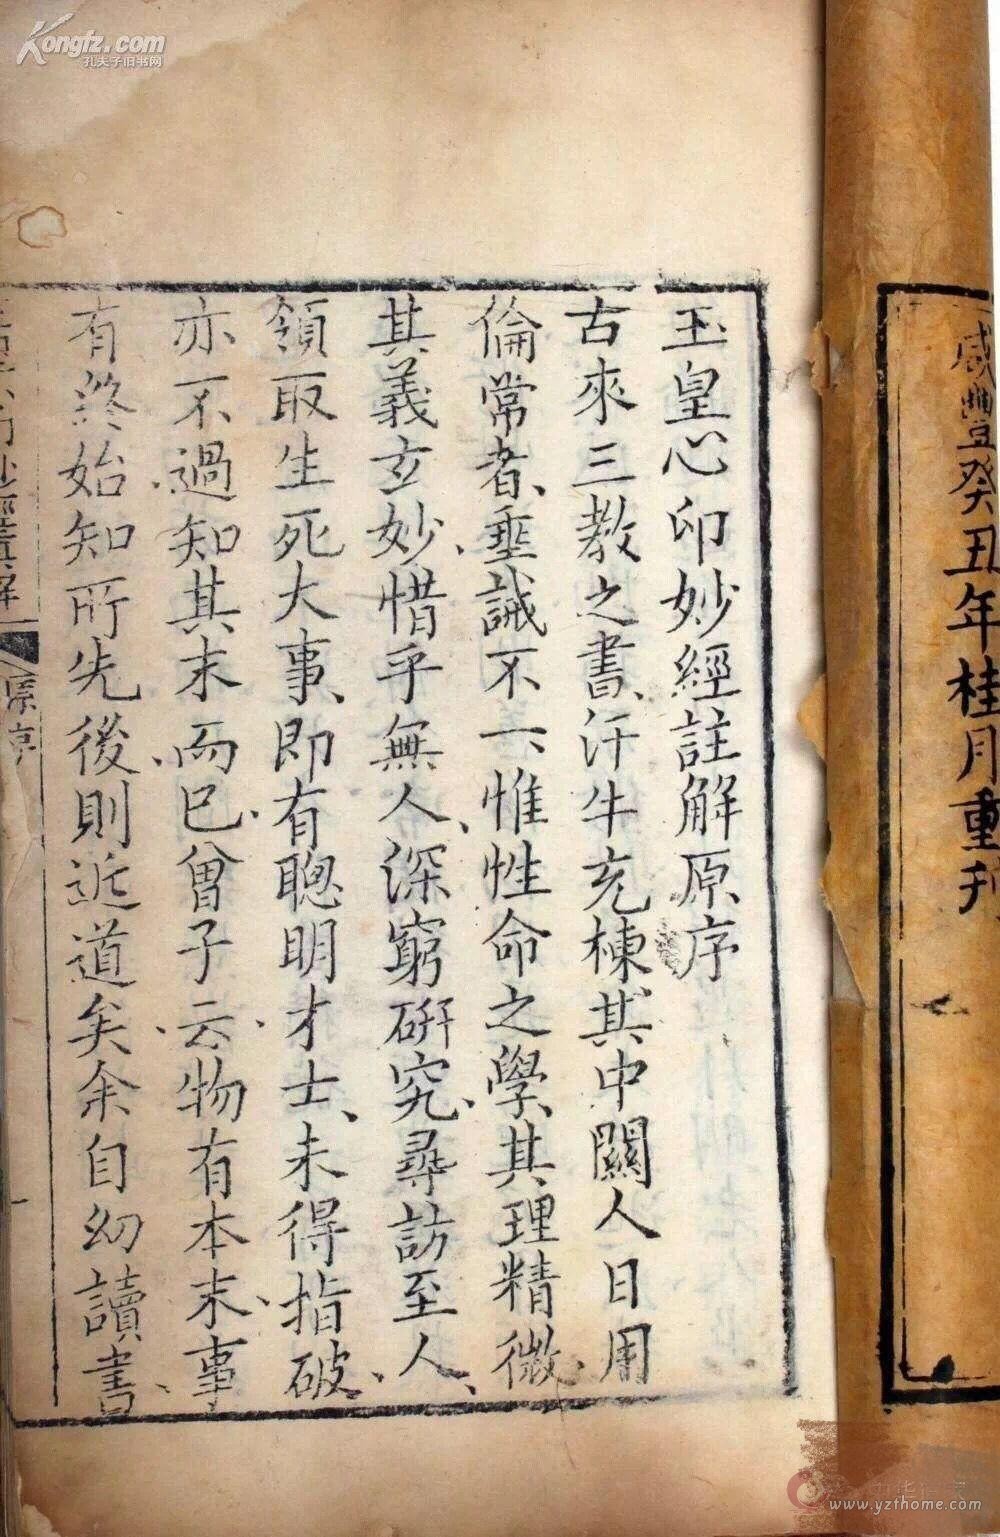 咸豐癸丑年桂月重刊
玉皇心印妙經註解原序
古來三教之書、汗牛充棟、其中關人日用
倫常者、垂誡不一、惟性命之學、其理精微、
其義玄妙、惜乎無人、深窮研究、尋訪至人、
領取生死大事、即有聰明才士、未得指破、
亦不過知其末而已、曾子云、物有本末、事
有終始、知所先後、則近道矣、余自幼讀書、
妙經真解 原序
Kongfz.com
孔夫子旧书网
www.yzfhome.com